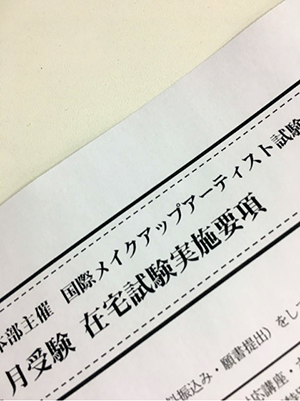 本部主催 国際メイクアップアーティスト試験
月受験 在宅試験実施要項
振込み・願書提出）をし
対応講座・